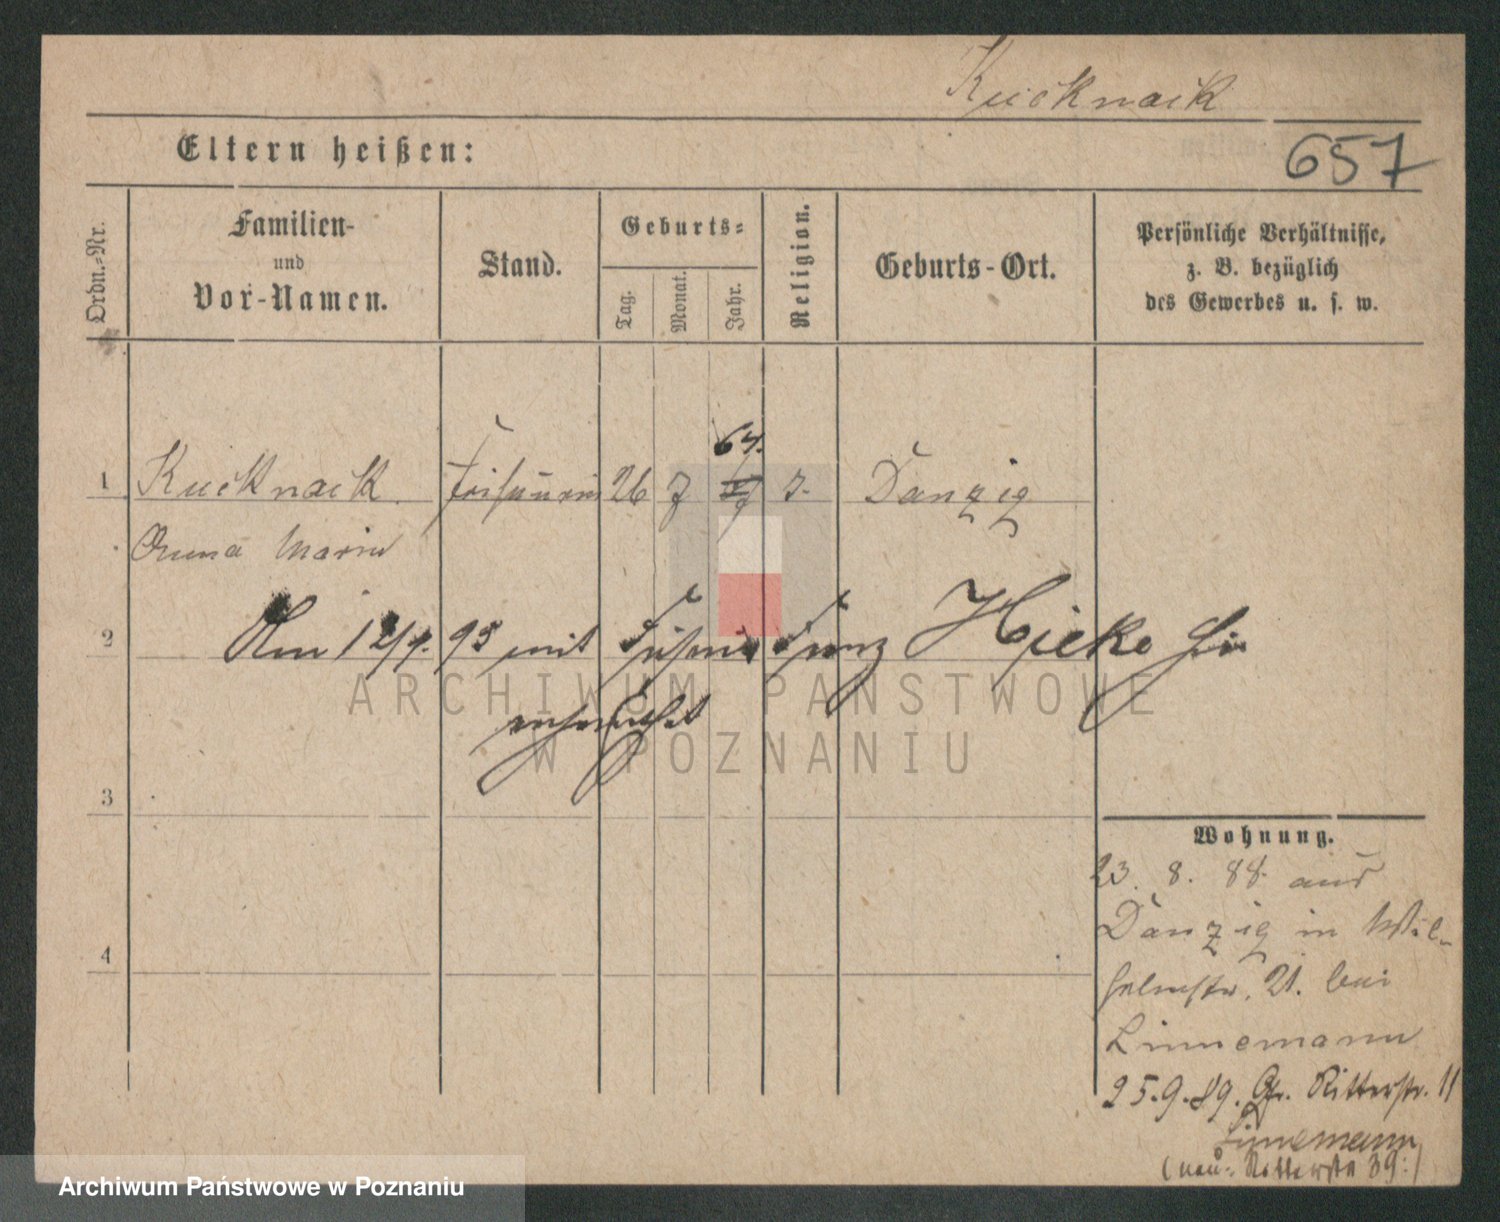 Kucknack
657
Eltern heißen:
Ordn.-Nr.
Familien-
und
Vor-Namen.
Stand.
Geburts-
Tag.
Monat.
Jahr.
Religion.
Geburts-Ort.
Persönliche Verhältnisse,
z. B. bezüglich
des Gewerbes u. s. w.
64.
1 Kucknack 26 7 Danzig
Anna Marie
2 Am 12/9. 93 mit Franz Hieke hier
verheirathet
ARCHIWUM PAŃSTWOWE
W POZNANIU
3
Wohnung.
23. 8. 88. aus
Danzig in Wil-
helmstr. 21. bei
4
Linnemann
25.9.89. Gr. Ritterstr. 11
Linnemann
(neu: Ritterstr 39:)
Archiwum Państwowe w Poznaniu